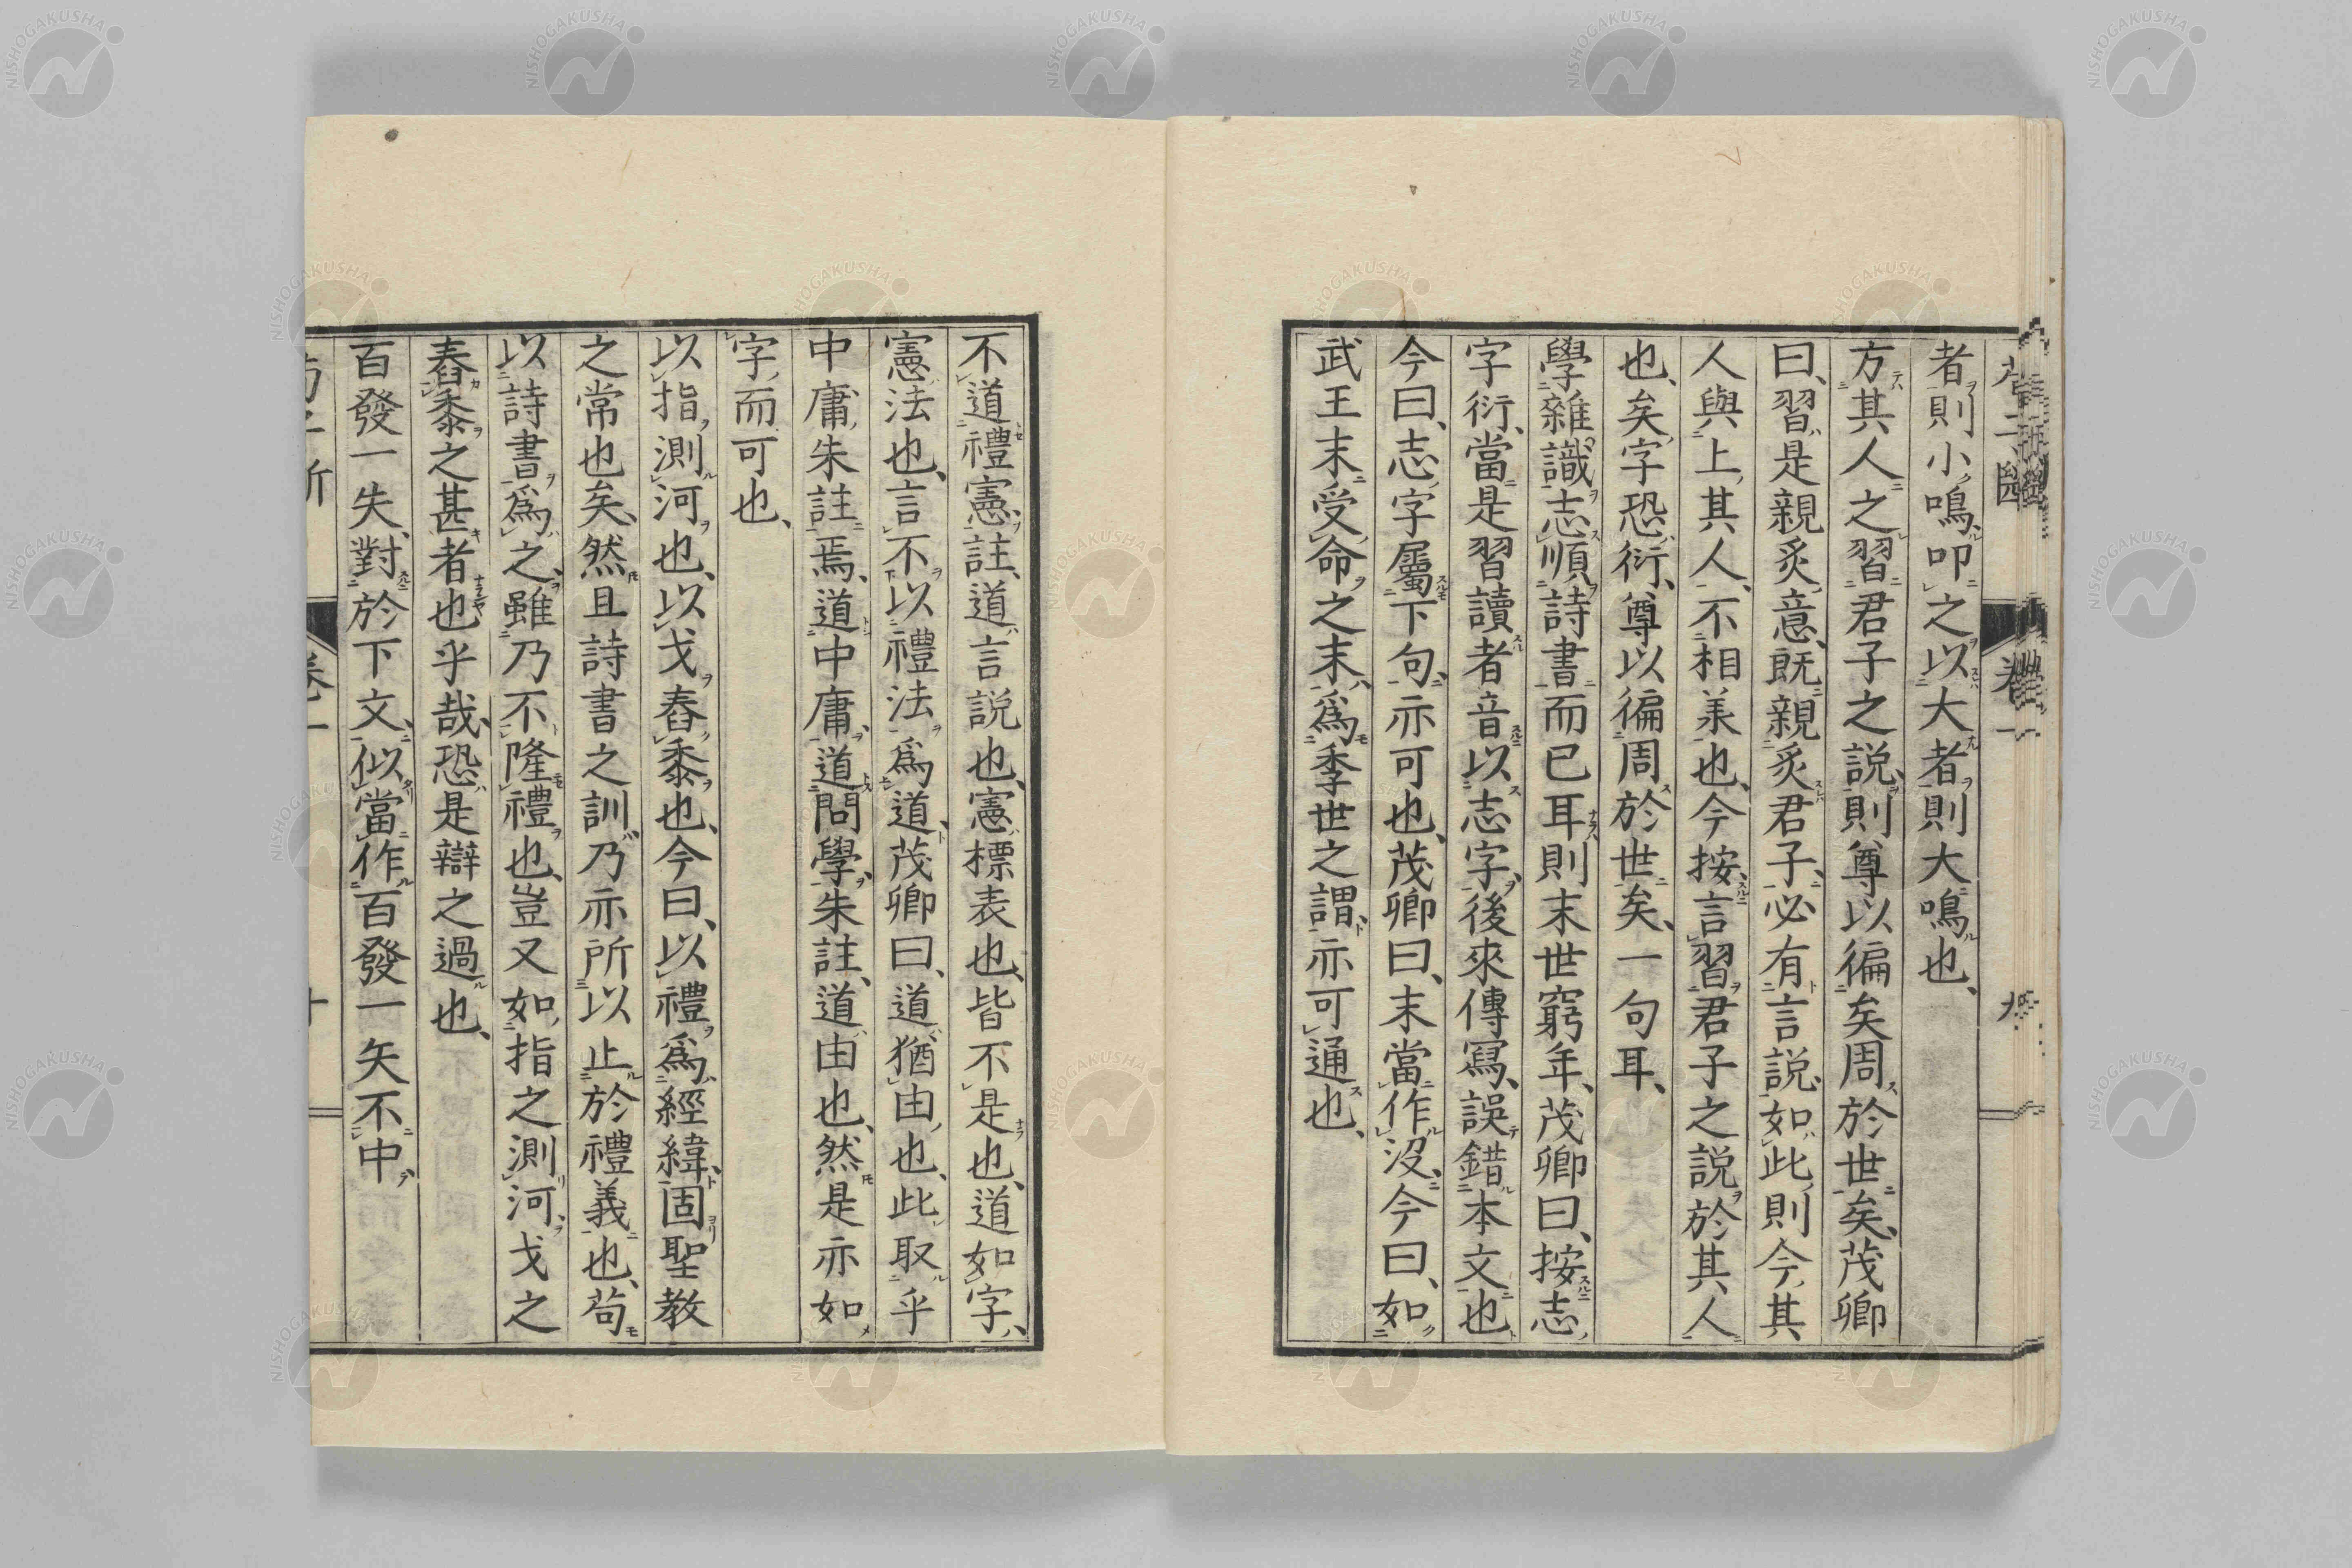 者則小鳴、叩之以大者則大鳴也、
方其人之習君子之説、則尊以徧矣周於世矣、茂卿
曰、習是親炙意、既親炙君子、必有言説、如此則今其
人與上其人、不相羕也、今按、言習君子之説於其人
也、矣字恐衍、尊以徧周於世矣、一句耳、
學雜識志順詩書而已耳則末世窮年、茂卿曰、按志
字衍、當是習讀者音以志字、後來傳寫、誤錯本文也
今曰、志字屬下句、亦可也、茂卿曰、末當作沒、今曰、如
武王末受命之末、爲季世之謂、亦可通也、
不道禮憲註、道言説也、憲標表也、皆不是也、道如字、
憲法也、言不以禮法爲道、茂卿曰、道猶由也、此取乎
中庸、朱註焉、道中庸、道問學、朱註、道由也、然是亦如
字而可也、
以指測河也、以戈舂黍也、今曰、以禮爲經緯、固聖教
之常也矣、然且詩書之訓、乃亦所以止於禮義也、苟
以詩書爲之、雖乃不隆禮也、豈又如指之測河、戈之
舂黍之甚者也乎哉、恐是辯之過也、
百發一失、對於下文、似當作百發一矢不中
卷一
九
NISHOGAKUSHA